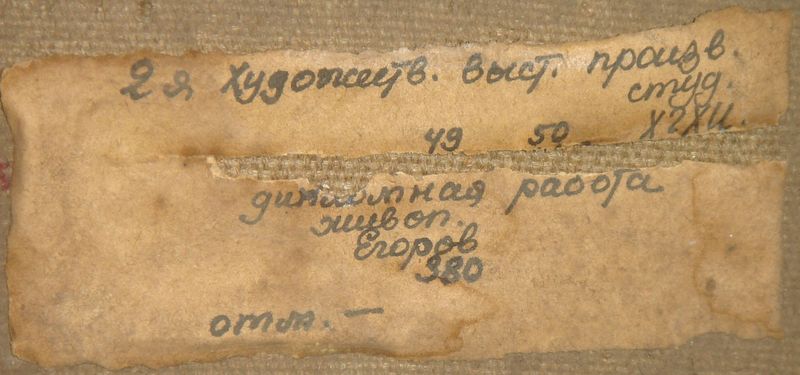 2я Художеств. выст. произв.
студ.
49 50 ХГХИ.
дипломная работа
живоп.
Егоров
980
отл. —